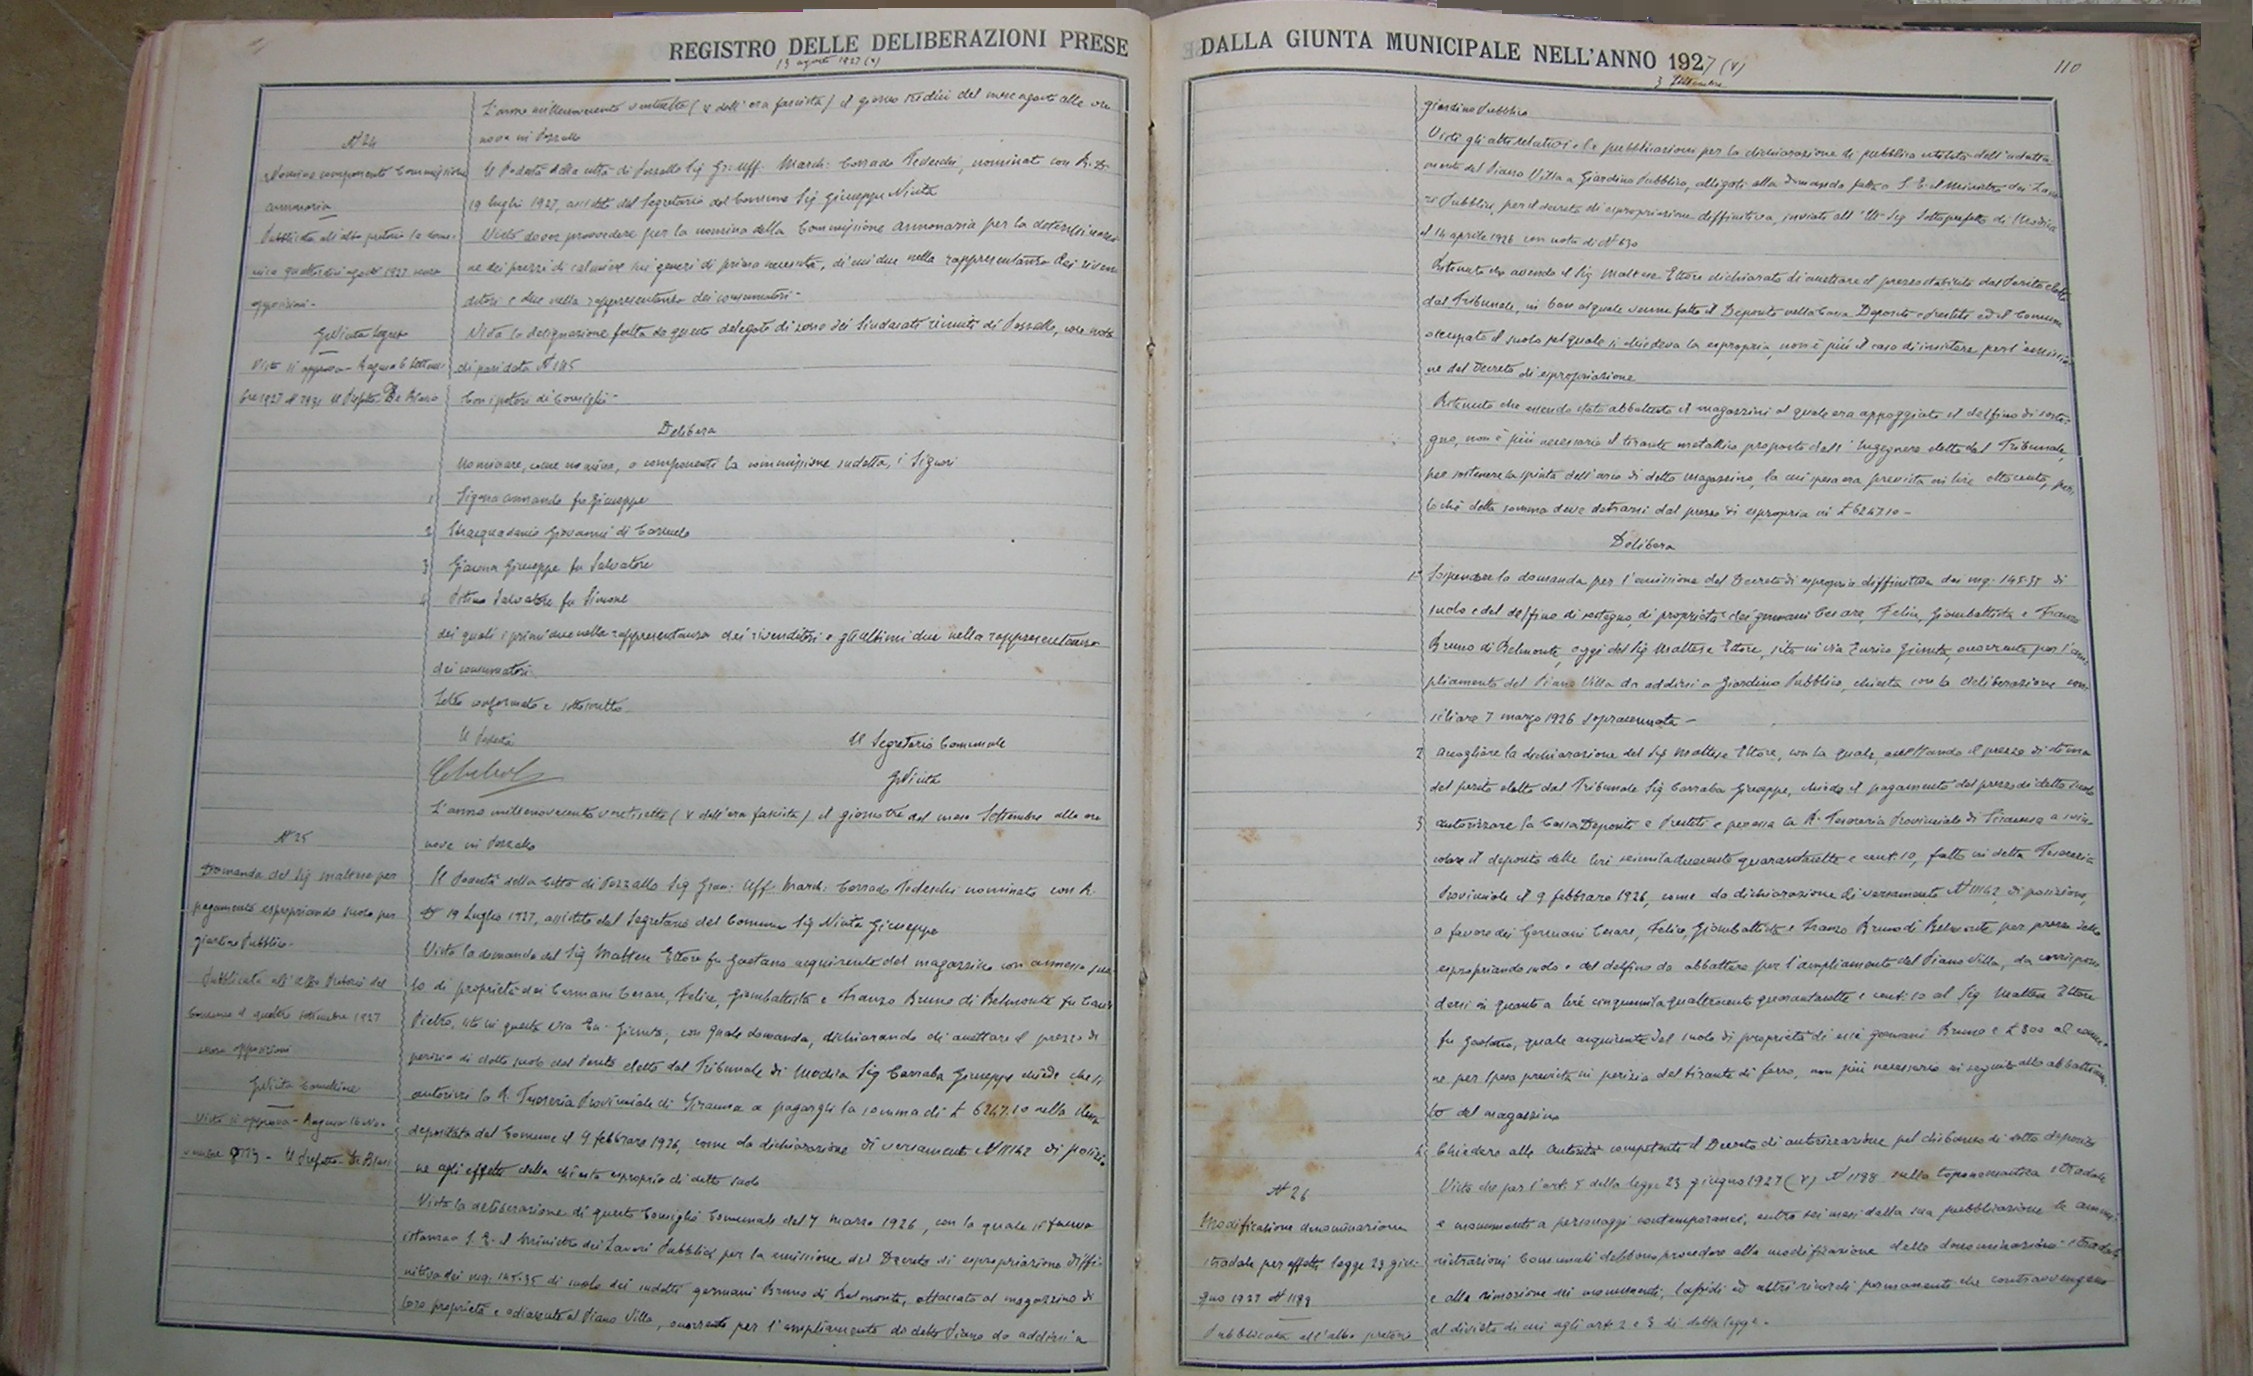 REGISTRO DELLE DELIBERAZIONI PRESE
13 agosto 1927 (V)
L'anno millenovecento ventisette (V dell'era fascista) il giorno tredici del mese agosto alle ore
nove in Pozzallo
N° 24
Nomina componenti Commissione
annonaria
Pubblicata all'albo pretorio la dome-
nica quattordici agosto 1927 senza
opposizioni-
G Niuta Segret
Visto si approva - Ragusa 6 Settem
bre 1927 N° Il Prefetto De Blasio
Il Podestà della città di Pozzallo Sig Gr: Uff. March: Corrado Tedeschi, nominato con R. D.
19 luglio 1927, assistito dal Segretario del Comune Sig Giuseppe Niuta
Visto dover provvedere per la nomina della Commissione annonaria per la determinazio-
ne dei prezzi di calmiere sui generi di prima necessità, di cui due nella rappresentanza dei riven
ditori e due nella rappresentanza dei consumatori-
Vista la designazione fatta da questo delegato di zona dei Sindacati riuniti di Pozzallo, con nota
di pari data N° 145
Con i poteri di Consiglio-
Delibera
Nominare, come nomina, a componenti la commissione sudetta, i Signori
1 Armando fu Giuseppe
2 Giovanni di Carmelo
3 Giunna Giuseppe fu Salvatore
4 Salvatore fu Simone
dei quali i primi due nella rappresentanza dei rivenditori e gli ultimi due nella rappresentanza
dei consumatori.
Letto confermato e sottoscritto
Il Podestà
Il Segretario Comunale
G Niuta
L'anno millenovecento ventisette (V dell'era fascista) il giorno tre del mese Settembre alle ore
nove in Pozzallo
N° 25
Domanda del Sig Maltese per
pagamento espropriando suolo per
giardino Pubblico-
Pubblicata all'albo Pretorio del
Comune il quattro settembre 1927
senza opposizioni
G Niuta
Visto si approva - Ragusa 16 No-
vembre Il Prefetto - De Blasi
Il Podestà della Città di Pozzallo Sig Gran: Uff. March: Corrado Tedeschi nominato con R.
D 19 Luglio 1927, assistito dal Segretario del Comune Sig Niuta Giuseppe
Vista la domanda del Sig Maltese Ettore fu Gaetano acquirente del magazzino con annesso suo-
lo di proprietà dei Germani Cesare, Felice, Giombattista e Franzo Bruno di Belmonte fu
Pietro, sito in questa Via En: Giunta, con quale domanda, dichiarando di accettare il prezzo di
perizia di detto suolo dal Perito eletto dal Tribunale di Modica Sig Carraba Giuseppe chiede che si
autorizzi la R. Tesoreria Provinciale di Siracusa a pagargli la somma di £ 6247.10 nella stessa
depositata dal Comune il 9 febbraro 1926, come da dichiarazione di versamento N° 11142 di posizio
ne agli effetti della chiesta espropria di detto suolo
Vista la deliberazione di questo Consiglio Comunale del 7 marzo 1926, con la quale si faceva
istanza a S. E. il Ministro dei Lavori Pubblici per la emissione del Decreto di espropriazione diffi-
nitiva dei mq. 145.35 di suolo dei sudetti germani Bruno di Belmonte, attaccato al magazzino di
loro proprietà e adiacente al Piano Villa, occorrente per l'ampliamento di detto Piano da addirsi a
DALLA GIUNTA MUNICIPALE NELL'ANNO 1927 (V)
3 Settembre
110
giardino Pubblico
Visti gli atti relativi e le pubblicazioni per la dichiarazione di pubblica utilità dell'adatta-
mento del Piano Villa a Giardino Pubblico, allegati alla domanda fatta a S. E. il Ministro dei Lavo
ri Pubblici, per il decreto di espropriazione diffinitiva, inviati all'Ill. Sig Sottoprefetto di Modica
il 14 aprile 1926 con nota di N° 630
Ritenuto che avendo il Sig Maltese Ettore dichiarato di accettare il prezzo stabilito dal Perito eletto
dal Tribunale, in base al quale venne fatto il Deposito nella Cassa Depositi e Prestiti ed il Comune
occupato il suolo pel quale si chiedeva la espropria, non è più il caso di insistere per l'emissio
ne del Decreto di espropriazione
Ritenuto che essendo stato abbattuto il magazzini al quale era appoggiato il delfino di soste-
gno, non è più necessario il tirante metallico proposto dall'Ingegnere eletto dal Tribunale,
per sostenere la spinta dell'arco di detto magazzino, la cui spesa era prevista in lire ottocento, per
lo chè detta somma deve detrarsi dal prezzo di espropria in £ 6247.10 -
Delibera
1° Sospendere la domanda per l'emissione del Decreto di espropria diffinitiva dei mq. 145.35 di
suolo e del delfino di sostegno, di proprietà dei germani Cesare, Felice, Giombattista e Franzo
Bruno di Belmonte, oggi del Sig Maltese Ettore, sito in via Enrico Giunta, occorrente per l'am-
pliamento del Piano Villa da addirsi a Giardino Pubblico, chiesta con la deliberazione con-
siliare 7 marzo 1926 sopracennata -
2 Accogliere la dichiarazione del Sig Maltese Ettore, con la quale, accettando il prezzo di stima
del perito eletto dal Tribunale Sig Carraba Giuseppe, chiede il pagamento del prezzo di detto suolo
3 Autorizzare la Cassa Depositi e Prestiti e per essa la R. Tesoreria Provinciale di Siracusa a svin-
colare il deposito delle lire seimiladuecento quarantasette e cent. 10, fatto in detta Tesoreria
Provinciale il 9 febbraro 1926, come da dichiarazione di versamento N° 11142, di posizione,
a favore dei Germani Cesare, Felice, Giombattista e Franzo Bruno di Belmonte per prezzo dello
espropriando suolo e del delfino da abbattere per l'ampliamento del Piano Villa, da corrispon
dersi in quanto a lire cinquemilaquattrocento quarantasette e cent. 10 al Sig Maltese Ettore
fu Gaetano, quale acquirente del suolo di proprietà di essi germani Bruno e £ 800 al comu-
ne per spesa prevista in perizia del tirante di ferro, non più necessario in seguito allo abbattimen-
to del magazzino
4 Chiedere alle Autorità competente il Decreto di autorizzazione pel disborso di detto deposito
N° 26
Modificazione denominazione
stradale per effetto legge 23 giu-
gno 1927 N° 1188
Pubblicata all'albo pretorio
Visto che per l'art. 5 della legge 23 giugno 1927 (V) N° 1188 sulla toponomastica stradale
e monumenti a personaggi contemporanei, entro sei mesi dalla sua pubblicazione le ammi-
nistrazioni Comunali debbono procedere alla modificazione delle denominazioni stradali
e alla rimozione dei monumenti, lapidi ed altri ricordi permanenti che contravvengano
al divieto di cui agli art. 2 e 3 di detta legge.